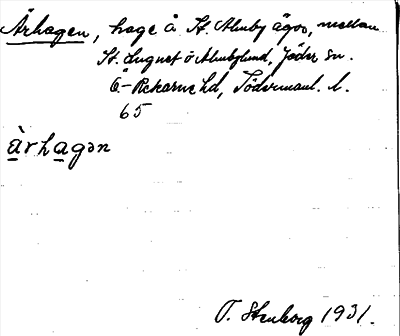 Århagen, hage å St. Almby ägor, mellan
St. Lugnet o Almbylund, Jäder sn.
Ö-Rekarne hd, Södermanl. l.
65
àrhagən
O. Stenborg 1931.